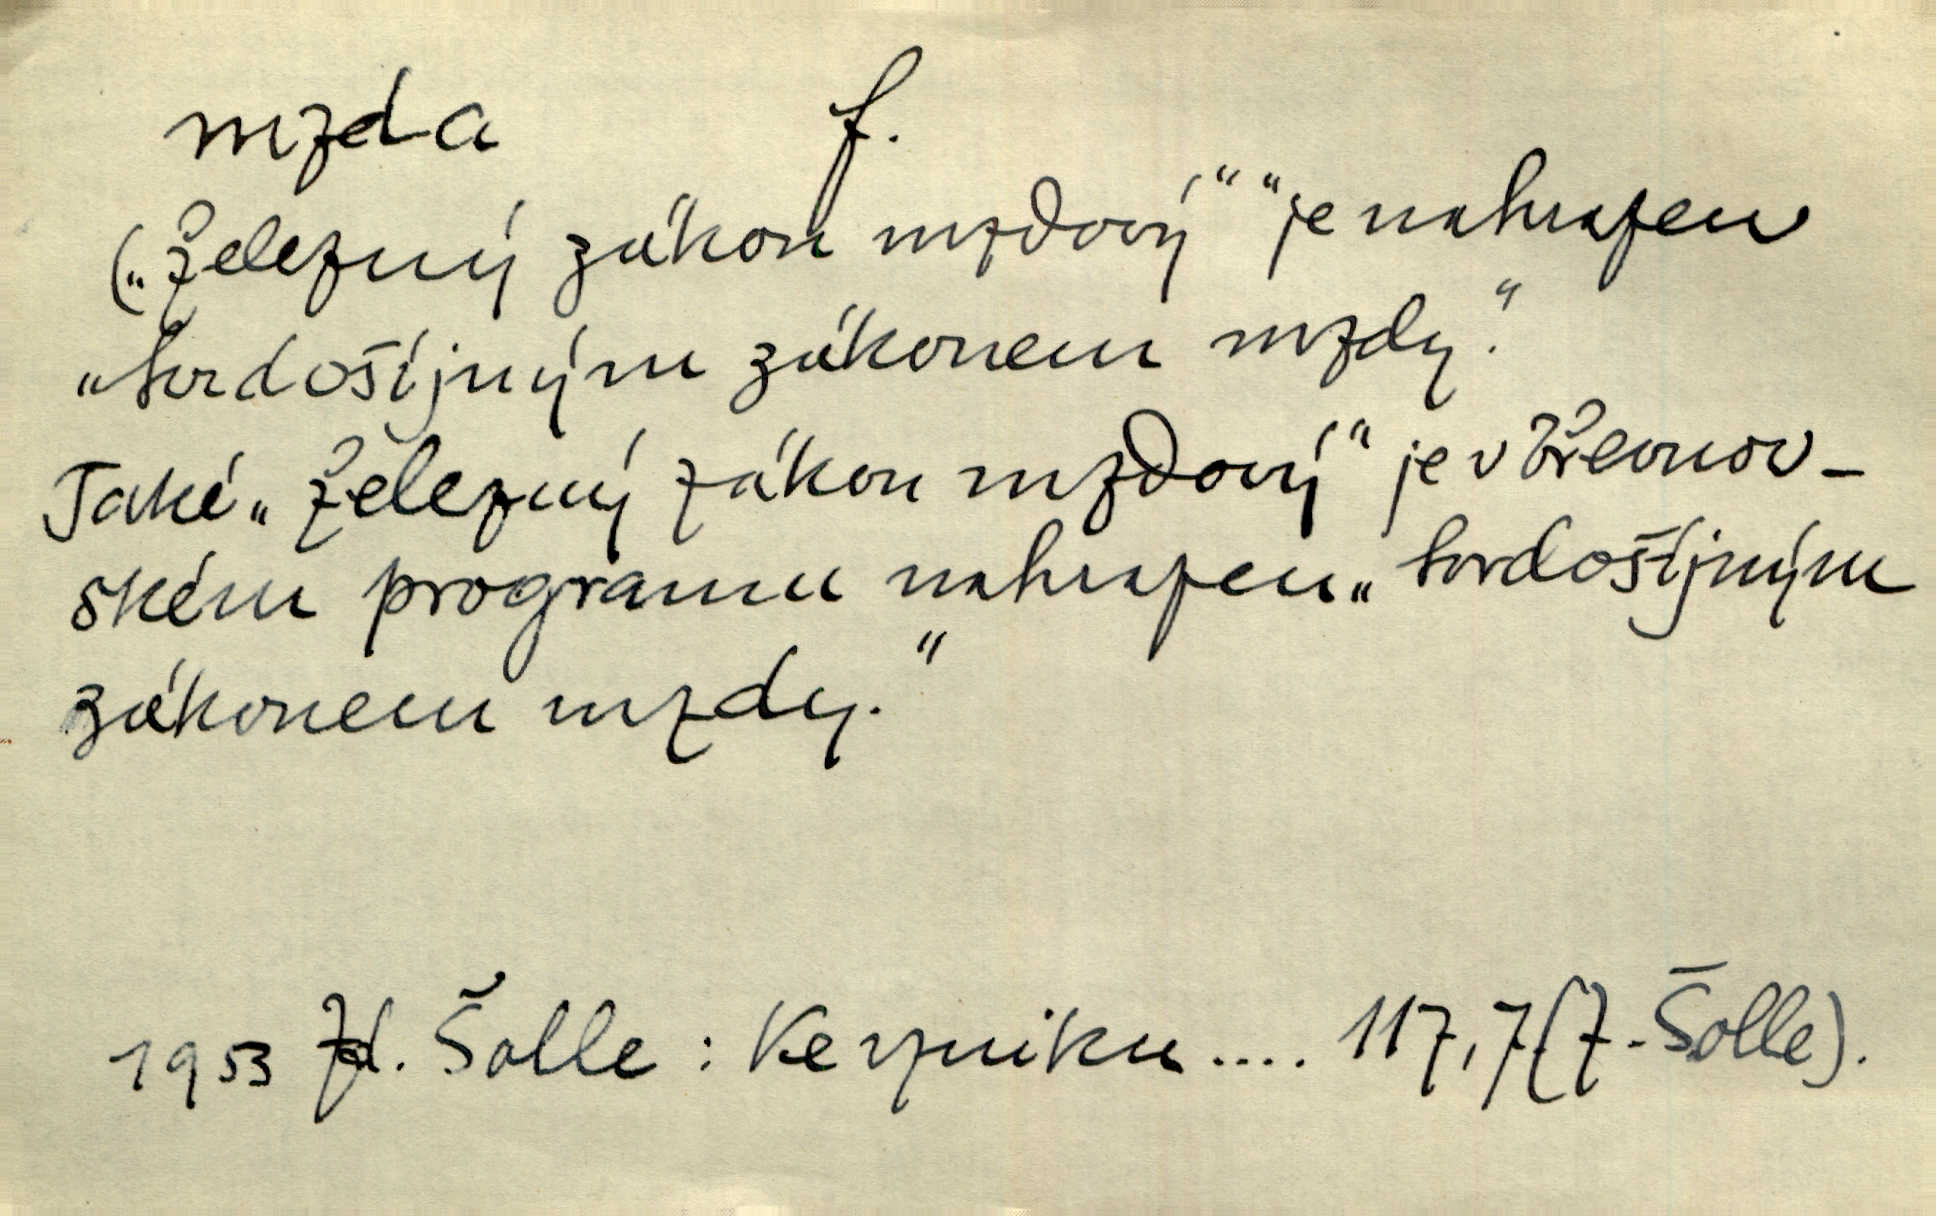 mzda f.
(„Železný zákon mzdový“ “je nahrazen
„tvrdošíjným zákonem mzdy.“
Také „železný zákon mzdový“ je v Břevnov-
ském programu nahrazen „tvrdošíjným
zákonem mzdy.“
1953 Zd. Šolle : Ke vzniku.... 117,7(Z. Šolle).